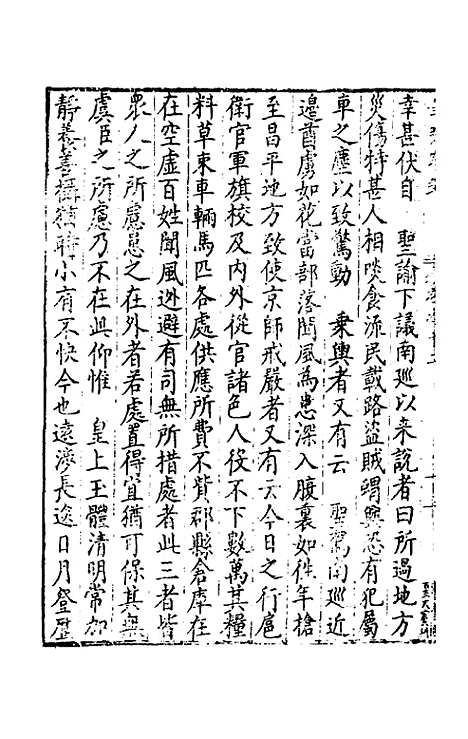 幸甚伏自　聖諭下議南巡以来説者曰所過地方
災傷特甚人相啖食流民載路盗賊竭興恐有犯屬
車之塵以致驚動　乘輿者又有云　聖駕南巡近
邊酋虜如花當部落聞風為患深入腹裏如徃年搶
至昌平地方致使京師戒嚴者又有云今日之行扈
衛官軍旗校及内外從官諸色人役不下數萬其糧
料草束車輛馬匹各處供應所費不貲郡縣倉庫在
在空虛百姓聞風迯避有司無所措處者此三者皆
衆人之所慮患之在外者若處置得宜猶可保其無
虞臣之所慮乃不在此仰惟　皇上玉體清明常加
靜養善攝穎聘小有不快今也遠渉長途日月登歴